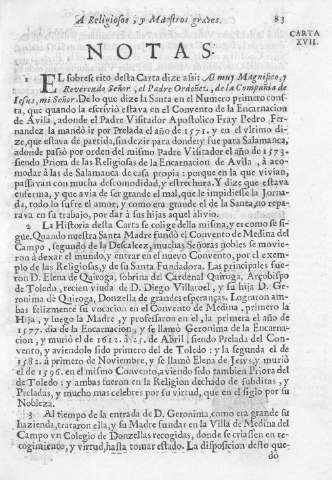 A Religiosos, y Maestros graves. 83
CARTA
XVII.
NOTAS.
1 EL sobrescrito desta Carta dize assi: Al muy Magnifico, y
Reverendo Señor, el Padre Ordoñez, de la Compañia de
Iesus, mi Señor. De lo que dize la Santa en el Numero primero cons-
ta, que quando la escriviò estava en el Convento de la Encarnacion
de Avila, adonde el Padre Visitador Apostolico Fray Pedro Fer-
nandez la mandò ir por Prelada el año de 1571. y en el vltimo di-
ze, que estava de partida, sin dezir para donde; y fue para Salamanca,
adonde passò por orden del mismo Padre Visitador el año de 1573.
siendo Priora de las Religiosas de la Encarnacion de Avila, à aco-
modar à las de Salamanca de casa propia: porque en la que vivian,
passavan con mucha descomodidad, y estrechura. Y dize que estava
enferma, y que avia de ser grande el mal, que le impidiesse la Jorna-
da, todo lo sufre el amor, y como era grande el de la Santa, no re-
parava en su trabajo, por dar à sus hijas aquel alivio.
2 La Historia desta Carta se colige della misma, y es como se si-
gue. Quando nuestra Santa Madre fundò el Convento de Medina del
Campo, segundo de la Descalcez, muchas Señoras nobles se movie-
ron à dexar el mundo, y entrar en el nuevo Convento, por el exem-
plo de las Religiosas, y de su Santa Fundadora. Las principales fue-
ron D. Elena de Quiroga, sobrina del Cardenal Quiroga, Arçobispo
de Toledo, recien viuda de D. Diego Villaroel, y su hija D. Ge-
ronima de Quiroga, Donzella de grandes esperanças. Lograron am-
bas felizmente su vocacion en el Convento de Medina, primero la
Hija, y luego la Madre, y professaron en èl, la primera el año de
1577. dia de la Encarnacion, y se llamò Geronima de la Encarna-
cion, y muriò el de 1612. à 25. de Abril, siendo Prelada del Con-
vento, y aviendolo sido primero del de Toledo: y la segunda el de
1582. à primero de Noviembre, y se llamò Elena de Jesvs, y muriò
el de 1596. en el mismo Convento, aviendo sido tambien Priora del
de Toledo: y ambas fueron en la Religion dechado de subditas, y
Preladas, y mucho mas celebres por su virtud, que en el siglo por su
Nobleza.
3 Al tiempo de la entrada de D. Geronima, como era grande su
hazienda, trataron ella, y su Madre fundar en la Villa de Medina del
Campo vn Colegio de Donzellas recogidas, donde se criassen en re-
cogimiento, y virtud, hasta tomar estado. La disposicion desto que-
dò